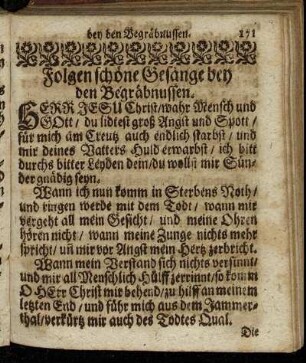 bey den Begräbnussen. 171
Folgen schöne Gesänge bey
den Begräbnussen.
HERR JESU Christ/wahr Mensch und
GOtt/ du lidtest groß Angst und Spott/
für mich am Creutz auch endlich starbst/ und
mir deines Vatters Huld erwarbst/ ich bitt
durchs bitter Leyden dein/du wollst mir Sün-
der gnädig seyn.
Wann ich nun komm in Sterbens Noth/
und ringen werde mit dem Todt/ wann mir
vergeht all mein Gesicht/ und meine Ohren
hören nicht/ wann meine Zunge nichts mehr
spricht/ uñ mir vor Angst mein Hertz zerbricht.
Wann mein Verstand sich nichts versinnt/
und mir all Menschlich Hülff zerrinnt/so komm
O HErr Christ mir behend/zu hilff an meinem
letzten End/ und führ mich aus dem Jammer-
thal/verkürtz mir auch des Todtes Qual.
Die